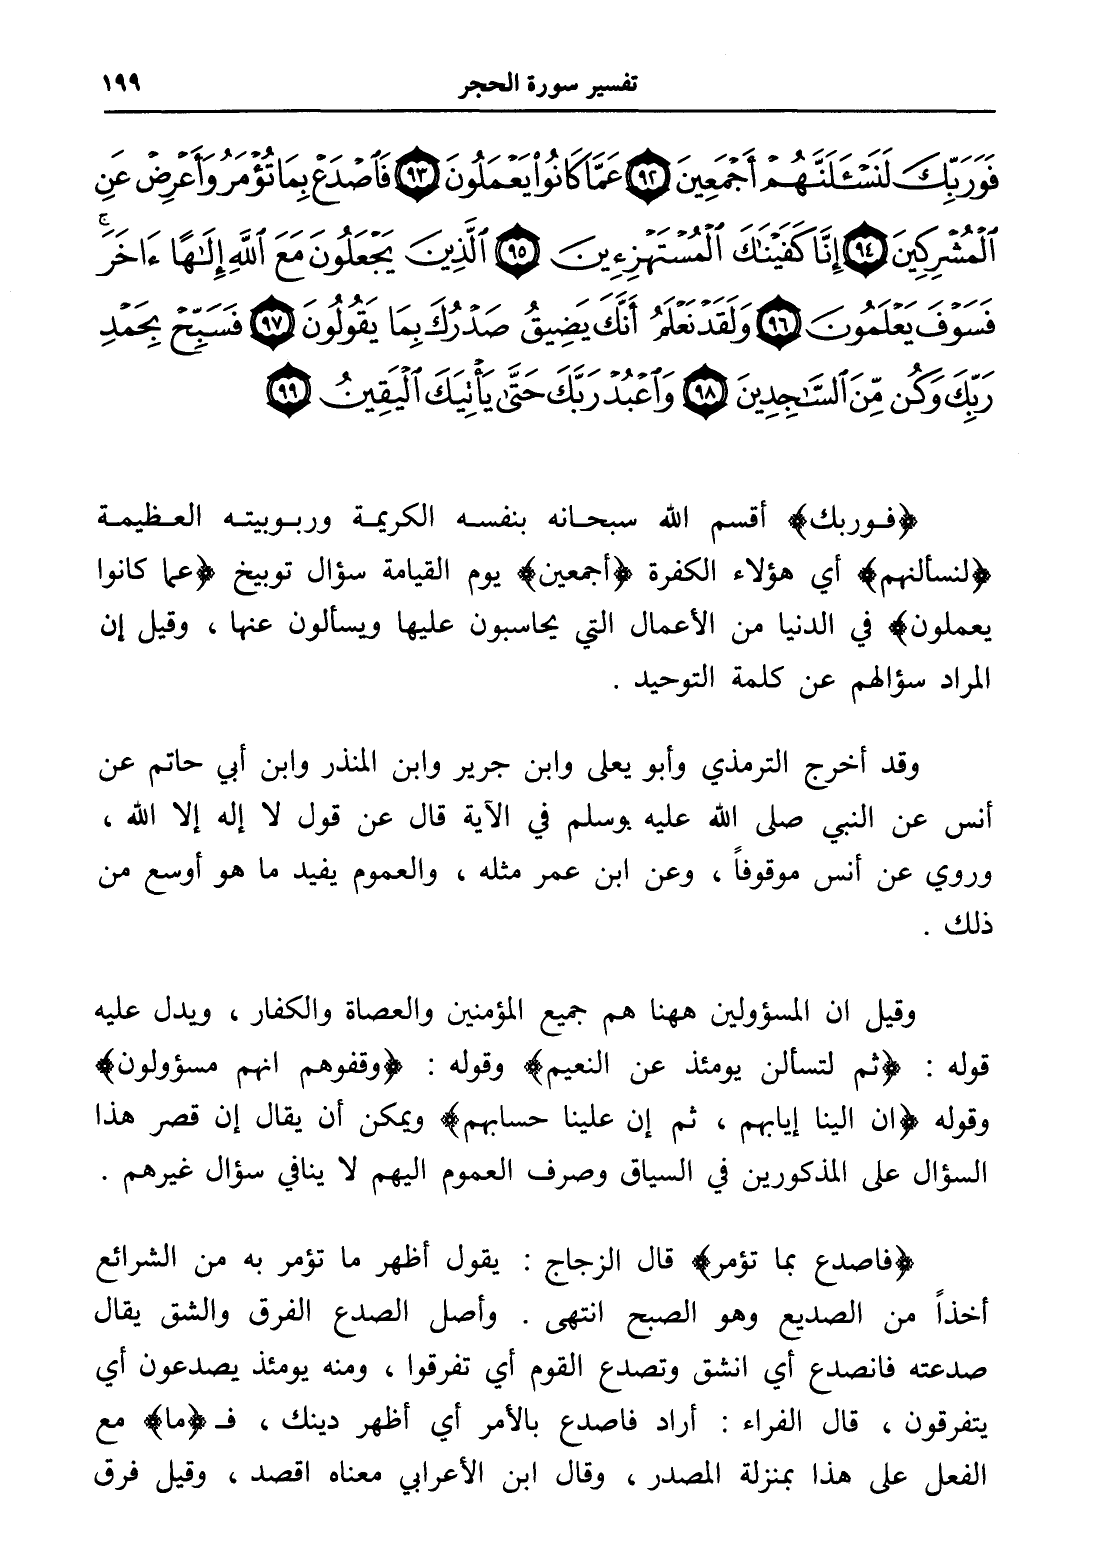 تفسير سورة الحجر ١٩٩
فَوَرَبِّكَ لَنَسْـَٔلَنَّهُمْ أَجْمَعِينَ ٩٢ عَمَّا كَانُوا۟ يَعْمَلُونَ ٩٣ فَٱصْدَعْ بِمَا تُؤْمَرُ وَأَعْرِضْ عَنِ
ٱلْمُشْرِكِينَ ٩٤ إِنَّا كَفَيْنَـٰكَ ٱلْمُسْتَهْزِءِينَ ٩٥ ٱلَّذِينَ يَجْعَلُونَ مَعَ ٱللَّهِ إِلَـٰهًا ءَاخَرَ ۚ
فَسَوْفَ يَعْلَمُونَ ٩٦ وَلَقَدْ نَعْلَمُ أَنَّكَ يَضِيقُ صَدْرُكَ بِمَا يَقُولُونَ ٩٧ فَسَبِّحْ بِحَمْدِ
رَبِّكَ وَكُن مِّنَ ٱلسَّـٰجِدِينَ ٩٨ وَٱعْبُدْ رَبَّكَ حَتَّىٰ يَأْتِيَكَ ٱلْيَقِينُ ٩٩
﴿فوربك﴾ أقسم الله سبحانه بنفسه الكريمة وربوبيته العظيمة
﴿لنسألنهم﴾ أي هؤلاء الكفرة ﴿أجمعين﴾ يوم القيامة سؤال توبيخ ﴿عما كانوا
يعملون﴾ في الدنيا من الأعمال التي يحاسبون عليها ويسألون عنها ، وقيل إن
المراد سؤالهم عن كلمة التوحيد .
وقد أخرج الترمذي وأبو يعلى وابن جرير وابن المنذر وابن أبي حاتم عن
أنس عن النبي صلى الله عليه وسلم في الآية قال عن قول لا إله إلا الله ،
وروي عن أنس موقوفاً ، وعن ابن عمر مثله ، والعموم يفيد ما هو أوسع من
ذلك .
وقيل ان المسؤولين ههنا هم جميع المؤمنين والعصاة والكفار ، ويدل عليه
قوله : ﴿ثم لتسألن يومئذ عن النعيم﴾ وقوله : ﴿وقفوهم انهم مسؤولون﴾
وقوله ﴿ان الينا إيابهم ، ثم إن علينا حسابهم﴾ ويمكن أن يقال إن قصر هذا
السؤال على المذكورين في السياق وصرف العموم اليهم لا ينافي سؤال غيرهم .
﴿فاصدع بما تؤمر﴾ قال الزجاج : يقول أظهر ما تؤمر به من الشرائع
أخذاً من الصديع وهو الصبح انتهى . وأصل الصدع الفرق والشق يقال
صدعته فانصدع أي انشق وتصدع القوم أي تفرقوا ، ومنه يومئذ يصدعون أي
يتفرقون ، قال الفراء : أراد فاصدع بالأمر أي أظهر دينك ، فـ ﴿ما﴾ مع
الفعل على هذا بمنزلة المصدر ، وقال ابن الأعرابي معناه اقصد ، وقيل فرق